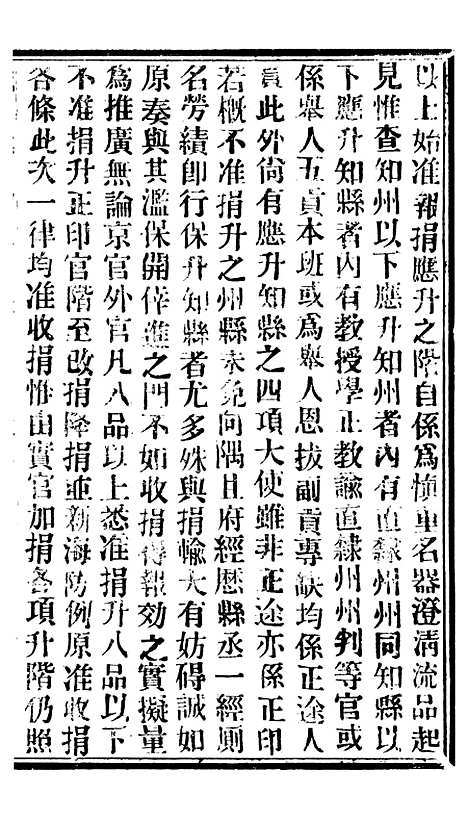 以上始准報捐應升之階自係爲愼重名器澄清流品起
見惟查知州以下應升知州者內有直隸州州同知縣以
下應升知縣者內有教授學正教諭直隸州州判等官或
係舉人五貢本班或爲舉人恩拔副貢專缺均係正途人
員此外尙有應升知縣之四項大使雖非正途亦係正印
若槪不准捐升之州縣未免向隅且府經歷縣丞一經厠
名勞績卽行保升知縣者尤多殊與捐輸大有妨碍誠如
原奏與其濫保開倖進之門不如收捐得報效之實擬量
爲推廣無論京官外官凡八品以上悉准捐升八品以下
不准捐升正印官階至改捐降捐並新海防例原准收捐
各條此次一律均准收捐惟由實官加捐各項升階仍照